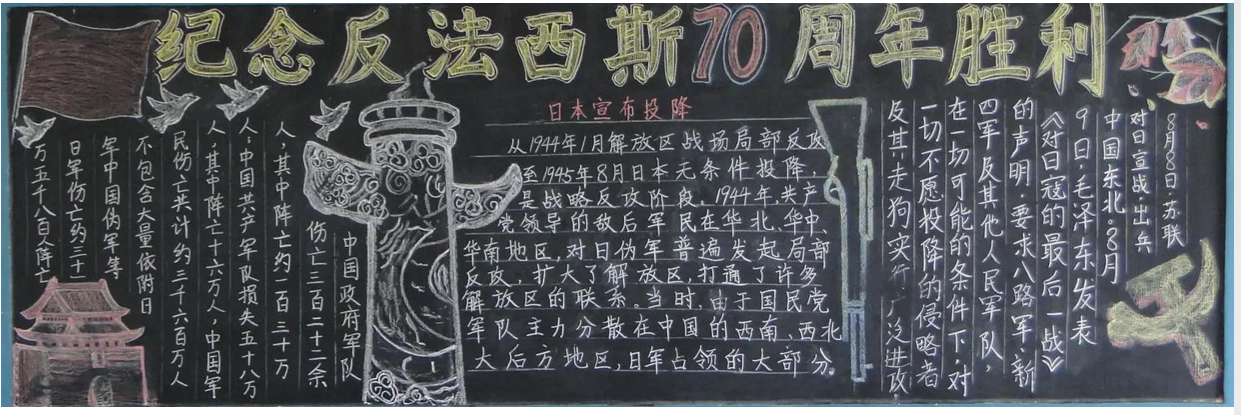 纪念反法西斯70周年胜利
日本宣布投降
从1944年1月解放区战场局部反攻
至1945年8月日本无条件投降,
是战略反攻阶段。1944年,共产
党领导的敌后军民在华北、华中、
华南地区,对日伪军普遍发起局部
反攻,扩大了解放区,打通了许多
解放区的联系。当时,由于国民党
军队主力分散在中国的西南、西北
大后方地区,日军占领的大部分。
8月8日,苏联
对日宣战,出兵
中国东北。8月
9日,毛泽东发表
《对日寇的最后一战》
的声明,要求八路军,新
四军及其他人民军队,
在一切可能的条件下,对
一切不愿投降的侵略者
及其走狗实行广泛进攻,
中国政府军队
伤亡三百二十二余
人,其中阵亡约一百三十万
人;中国共产军队损失五十八万
人,其中阵亡十六万人,中国军
民伤亡共计约三千六百万人
不包含大量依附日
军中国伪军等
日军伤亡约三十
万五千八百人阵亡